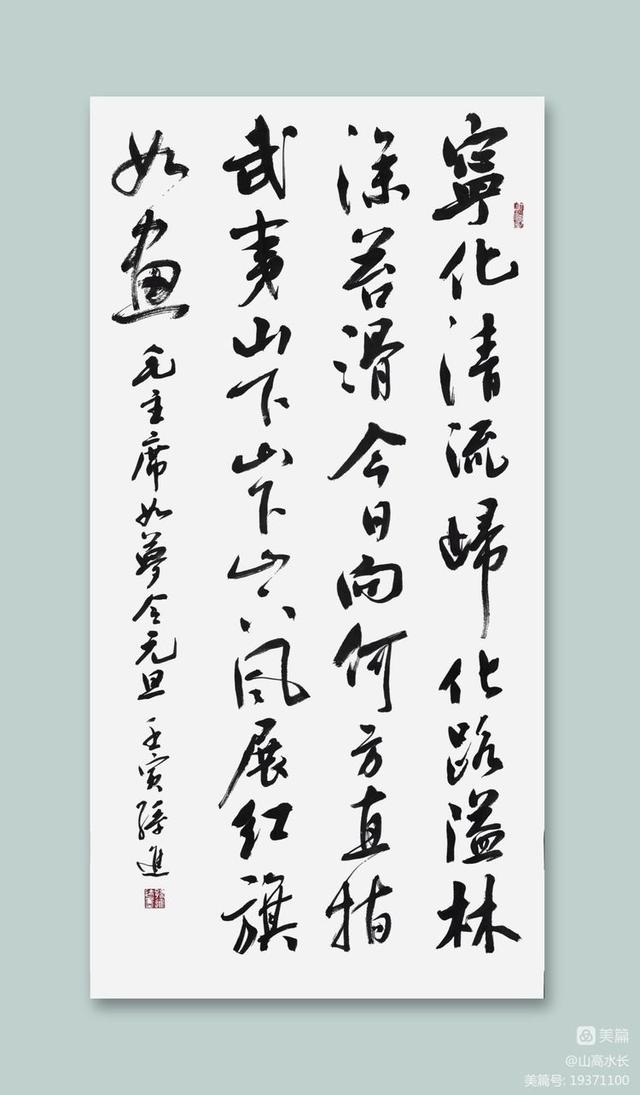 寧化清流歸化路溢林
深苔滑今日向何方直指
武夷山下山下山下风展红旗
如画 毛主席如夢令元旦 壬寅孫進
美篇
@山高水长
美篇号: 19371100